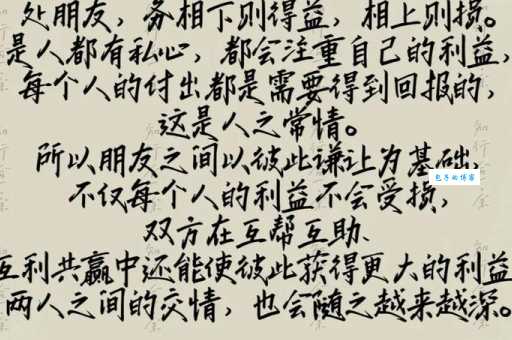 处朋友，务相下则得益，相上则损。
是人都有私心，都会注重自己的利益，
每个人的付出都是需要得到回报的，
这是人之常情。
所以朋友之间以彼此谦让为基础，
不仅每个人的利益不会受损，
双方在互帮互助、
互利共赢中还能使彼此获得更大的利益
两人之间的交情，也会随之越来越深。